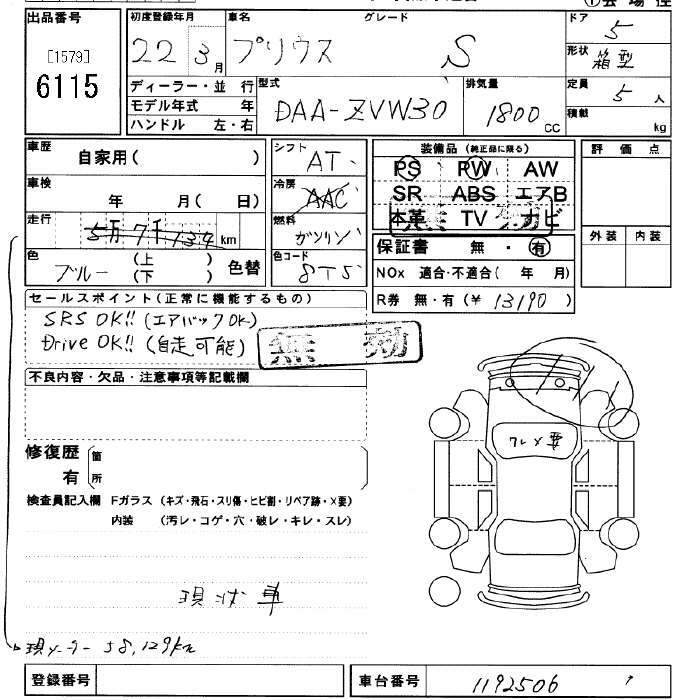 出品番号
[1579]
6115
初度登録年月
22 3月
車名
プリウス
グレード
S
ドア
5
形状
箱型
ディーラー・並 行
モデル年式 年
ハンドル 左・右
型式
DAA-ZVW30
排気量
1800 CC
定員
5 人
積載
kg
車歴
自家用( )
車検
年 月( 日)
走行
5万7千134 km
色
ブルー (上)(下) 色替
シフト
AT
冷房
AAC
燃料
ガソリン
色コード
8T5
装備品 (純正品に限る)
PS PW AW
SR ABS エアB
本革 TV ナビ
保証書 無・有
NOx 適合・不適合( 年 月)
R券 無・有(¥ 13190 )
評価点
外装 内装
セールスポイント(正常に機能するもの)
SRS OK!! (エアバックOK)
Drive OK!! (自走可能)
無効
不良内容・欠品・注意事項等記載欄
修復歴
有
箇所
検査員記入欄 Fガラス (キズ・飛石・スリ傷・ヒビ割・リペア跡・X要)
内装 (汚レ・コゲ・穴・破レ・キレ・スレ)
ワレX要
現状車
現メーター 58,129km
登録番号
車台番号
1192506